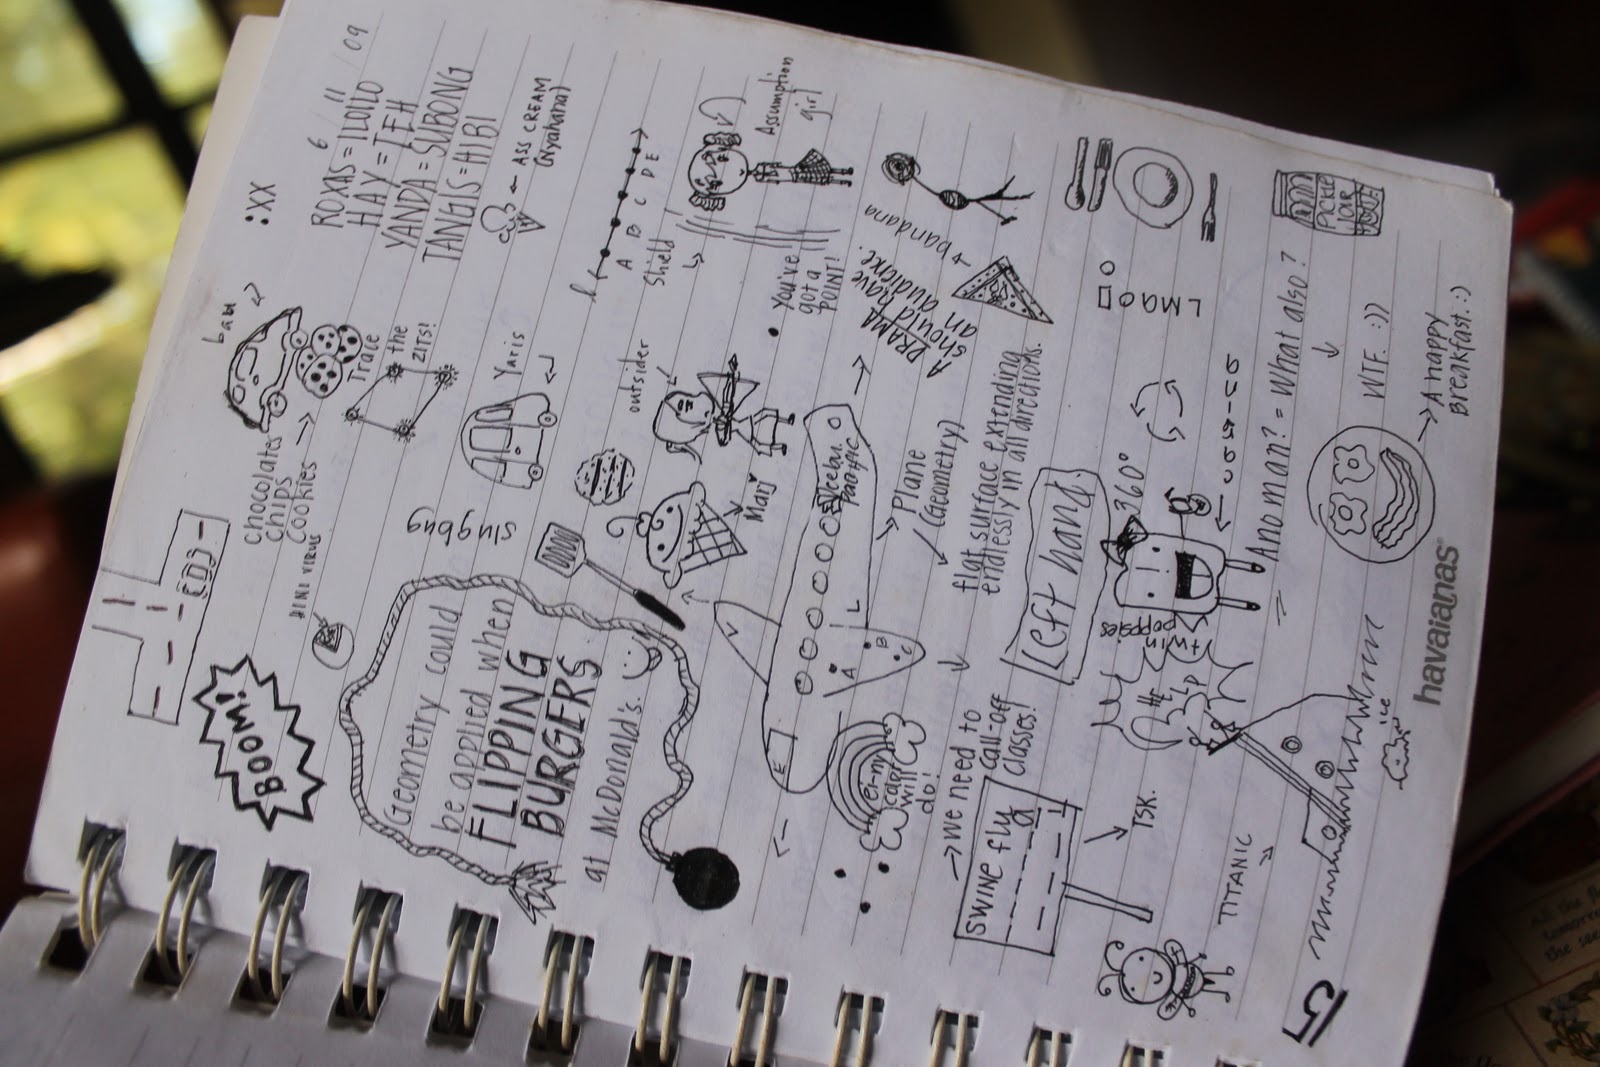 6 / 11 / 09
:XX
ROXAS = ILOILO
HAY = JEH
YANDA = SUBONG
TANGIS = HIBI
← ASS CREAM
(Nyahaha)
chocolates
chips
cookies
Trace
the
ZITS!
Yaris
slugbug
DINI VIRUS
BOOM!
Geometry could
be applied when
FLIPPING
BURGERS
at McDonald's.
A B C D E
Shield
Assumption
girl
You've
got a
POINT!
outsider
Marj
A DRAMA
should have
an audience.
→ bandana
Plane
(Geometry)
flat surface extending
endlessly in all directions.
Cebu
Pacific
V
L
A
B
C
E
we can
will
do!
→ we need to
call-off
classes!
SWINE fly
TSK.
Left hand
360°
LMAO
twin
poppsies
HELP
PICKLE
JAR
Ano man? = What also?
WTF :))
→ A happy
breakfast :)
ice
TITANIC
15
havaianas